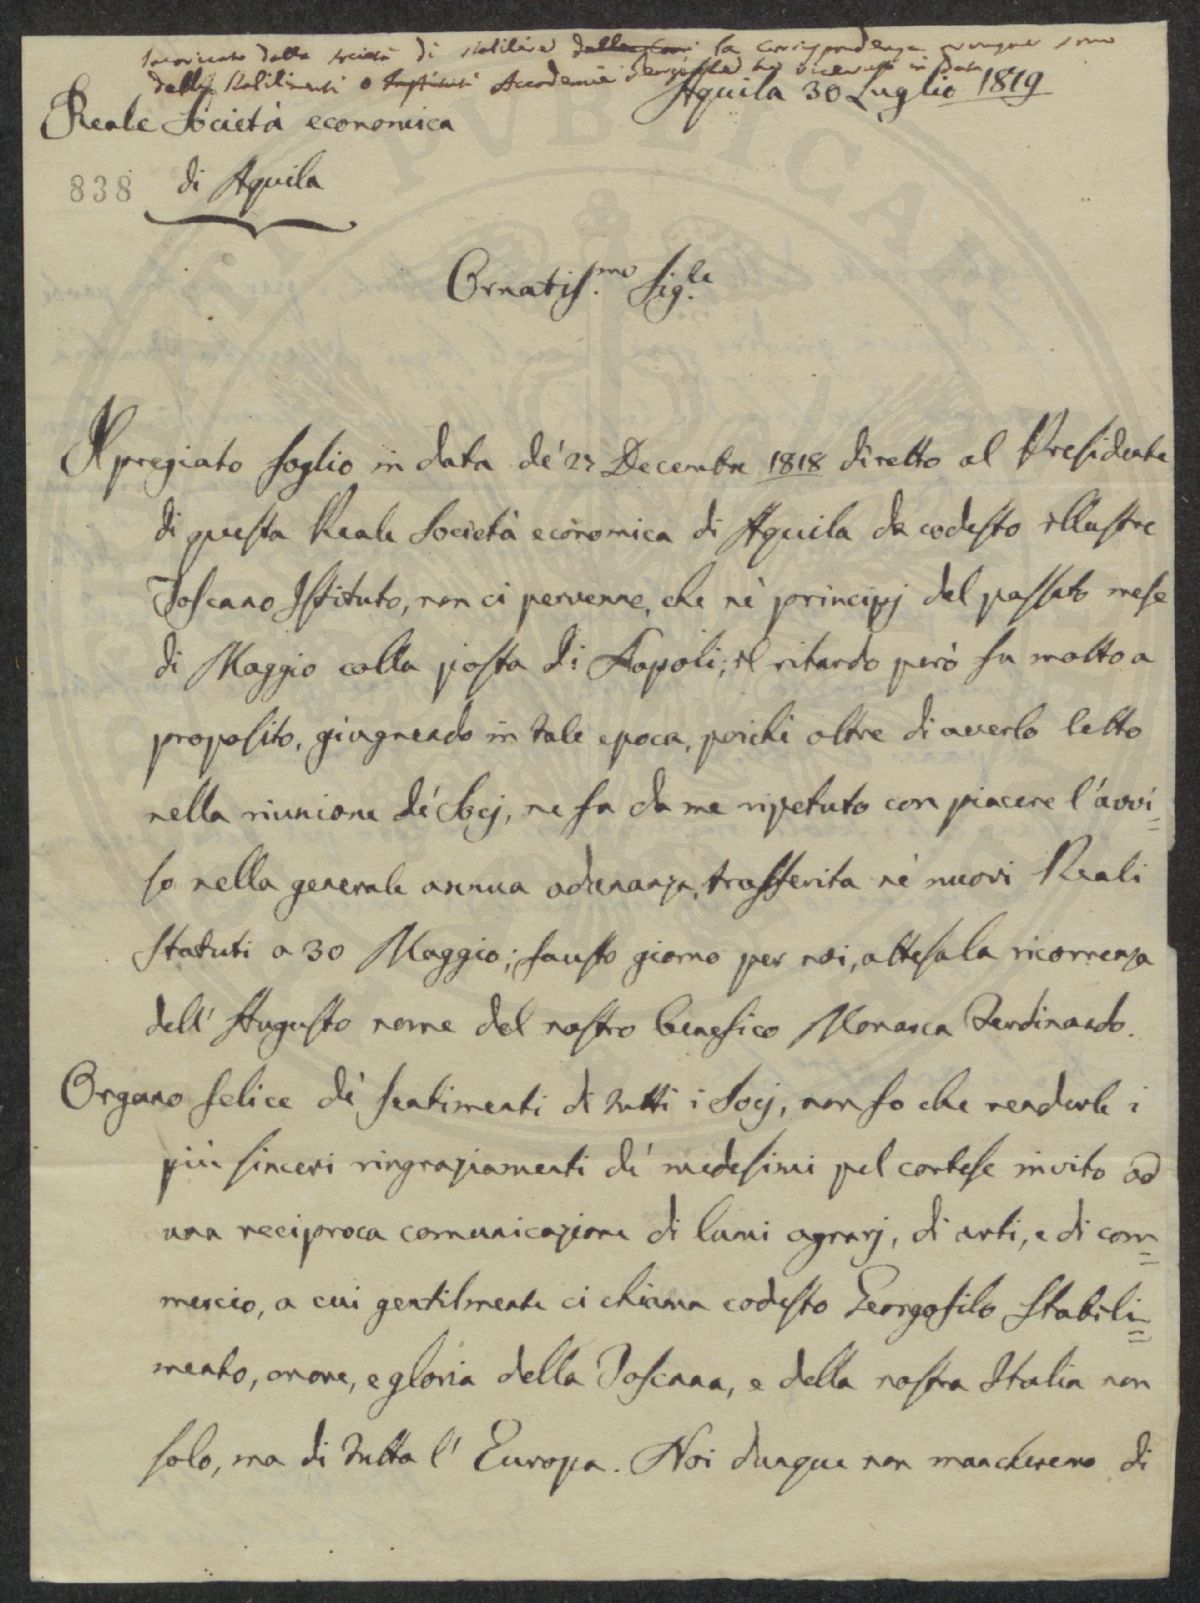 Incaricato dalla Società di stabilire la corrispondenza
delli Stabilimenti o Accademie in data
Aquila 30 Luglio 1819
Reale Società economica
838 di Aquila
Ornatis.mo Sig.le
Il pregiato foglio in data de' 27 Decembre 1818 diretto al Presidente
di questa Reale Società economica di Aquila da codesto illustre
Toscano Istituto, non ci pervenne, che ne' principj del passato mese
di Maggio colla posta di Napoli; il ritardo però fu molto a
proposito, giugnendo in tale epoca, poichè oltre di averlo letto
nella riunione de' Socj, ne fu da me ripetuto con piacere l'avvi=
so nella generale annua adunanza, trasferita ne' nuovi Reali
Statuti a 30 Maggio; fausto giorno per noi, attesa la ricorrenza
dell'Augusto nome del nostro benefico Monarca Ferdinando.
Organo felice de' sentimenti di tutti i Socj, non so che renderle i
più sinceri ringraziamenti de' medesimi pel cortese invito ad
una reciproca comunicazione di lumi agrarj, di arti, e di com=
mercio, a cui gentilmente ci chiama codesto Georgofilo Stabili=
mento, onore, e gloria della Toscana, e della nostra Italia non
solo, ma di tutta l'Europa. Noi dunque non mancheremo di